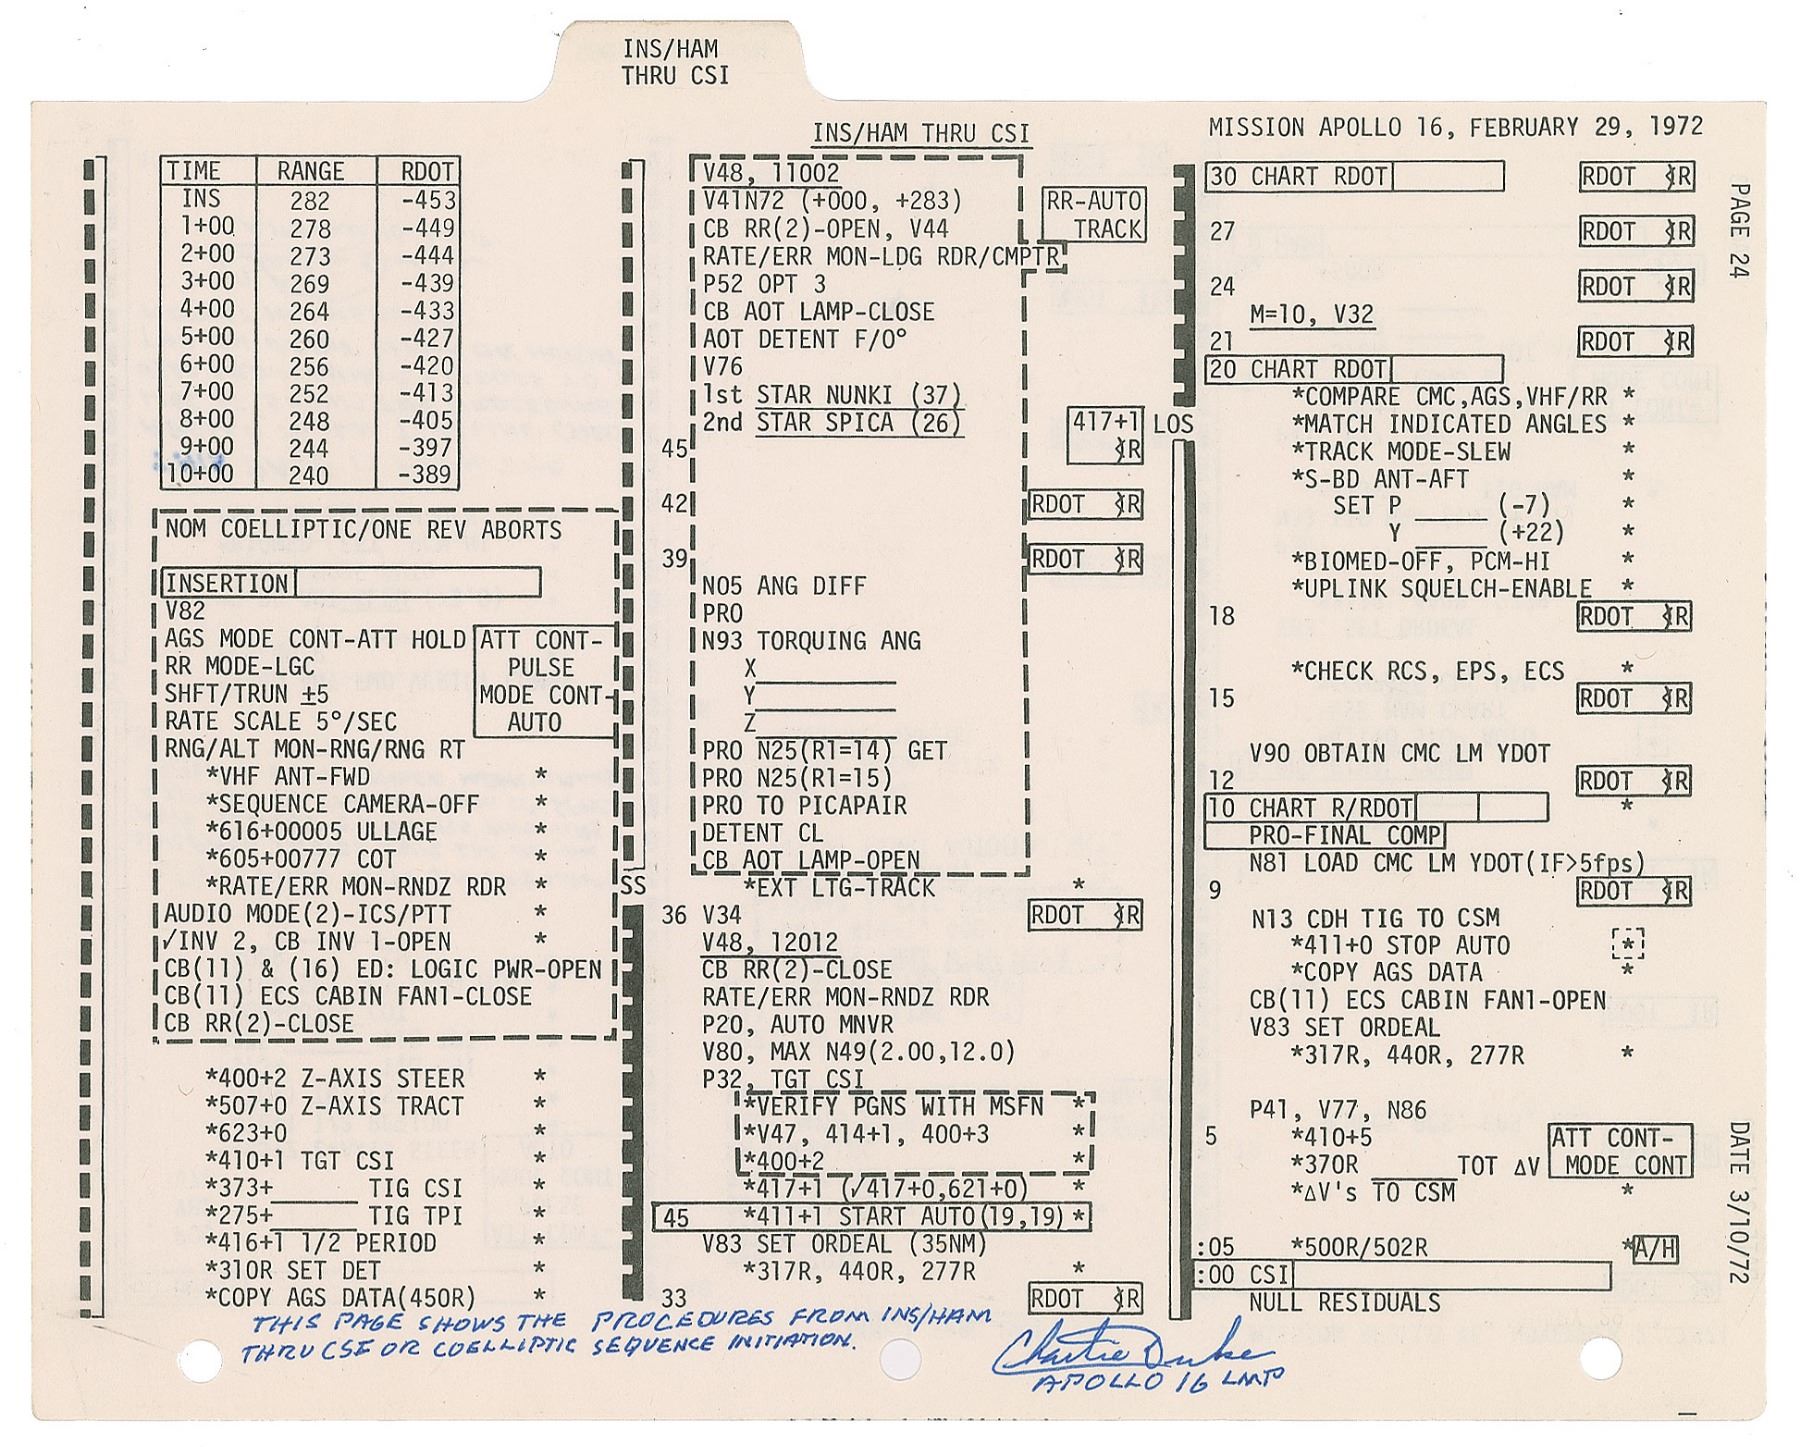 INS/HAM
THRU CSI
INS/HAM THRU CSI
MISSION APOLLO 16, FEBRUARY 29, 1972
PAGE 24
DATE 3/10/72
TIME RANGE RDOT
INS 282 -453
1+00 278 -449
2+00 273 -444
3+00 269 -439
4+00 264 -433
5+00 260 -427
6+00 256 -420
7+00 252 -413
8+00 248 -405
9+00 244 -397
10+00 240 -389
NOM COELLIPTIC/ONE REV ABORTS
INSERTION
V82
AGS MODE CONT-ATT HOLD
RR MODE-LGC
SHFT/TRUN ±5
RATE SCALE 5°/SEC
ATT CONT-
PULSE
MODE CONT-
AUTO
RNG/ALT MON-RNG/RNG RT
*VHF ANT-FWD *
*SEQUENCE CAMERA-OFF *
*616+00005 ULLAGE *
*605+00777 COT *
*RATE/ERR MON-RNDZ RDR *
AUDIO MODE(2)-ICS/PTT *
√INV 2, CB INV 1-OPEN *
CB(11) & (16) ED: LOGIC PWR-OPEN
CB(11) ECS CABIN FAN1-CLOSE
CB RR(2)-CLOSE
*400+2 Z-AXIS STEER *
*507+0 Z-AXIS TRACT *
*623+0 *
*410+1 TGT CSI *
*373+______ TIG CSI *
*275+______ TIG TPI *
*416+1 1/2 PERIOD *
*310R SET DET *
*COPY AGS DATA(450R) *
SS
V48, 11002
V41N72 (+000, +283)
CB RR(2)-OPEN, V44
RR-AUTO
TRACK
RATE/ERR MON-LDG RDR/CMPTR
P52 OPT 3
CB AOT LAMP-CLOSE
AOT DETENT F/0°
V76
1st STAR NUNKI (37)
2nd STAR SPICA (26)
417+1 LOS
45 ∢R
42 RDOT ∢R
39 RDOT ∢R
N05 ANG DIFF
PRO
N93 TORQUING ANG
X__________
Y__________
Z__________
PRO N25(R1=14) GET
PRO N25(R1=15)
PRO TO PICAPAIR
DETENT CL
CB AOT LAMP-OPEN
*EXT LTG-TRACK *
36 V34 RDOT ∢R
V48, 12012
CB RR(2)-CLOSE
RATE/ERR MON-RNDZ RDR
P20, AUTO MNVR
V80, MAX N49(2.00,12.0)
P32, TGT CSI
*VERIFY PGNS WITH MSFN *
*V47, 414+1, 400+3 *
*400+2 *
*417+1 (√417+0,621+0) *
45 *411+1 START AUTO(19,19) *
V83 SET ORDEAL (35NM)
*317R, 440R, 277R *
33 RDOT ∢R
30 CHART RDOT RDOT ∢R
27 RDOT ∢R
24 RDOT ∢R
M=10, V32
21 RDOT ∢R
20 CHART RDOT
*COMPARE CMC,AGS,VHF/RR *
*MATCH INDICATED ANGLES *
*TRACK MODE-SLEW *
*S-BD ANT-AFT *
SET P _____ (-7) *
Y _____ (+22) *
*BIOMED-OFF, PCM-HI *
*UPLINK SQUELCH-ENABLE *
18 RDOT ∢R
*CHECK RCS, EPS, ECS *
15 RDOT ∢R
V90 OBTAIN CMC LM YDOT
12 RDOT ∢R
10 CHART R/RDOT *
PRO-FINAL COMP
N81 LOAD CMC LM YDOT(IF>5fps)
9 RDOT ∢R
N13 CDH TIG TO CSM
*411+0 STOP AUTO *
*COPY AGS DATA *
CB(11) ECS CABIN FAN1-OPEN
V83 SET ORDEAL
*317R, 440R, 277R *
P41, V77, N86
5 *410+5
*370R ______ TOT ΔV
ATT CONT-
MODE CONT
*ΔV's TO CSM *
:05 *500R/502R *A/H
:00 CSI
NULL RESIDUALS
THIS PAGE SHOWS THE PROCEDURES FROM INS/HAM
THRU CSI OR COELLIPTIC SEQUENCE INITIATION.
Charlie Duke
APOLLO 16 LMP